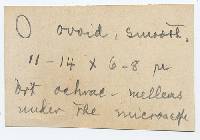 ovoid, smooth,
11-14 x 6-8 µ
Brt ochrac-melleus
under the microscope